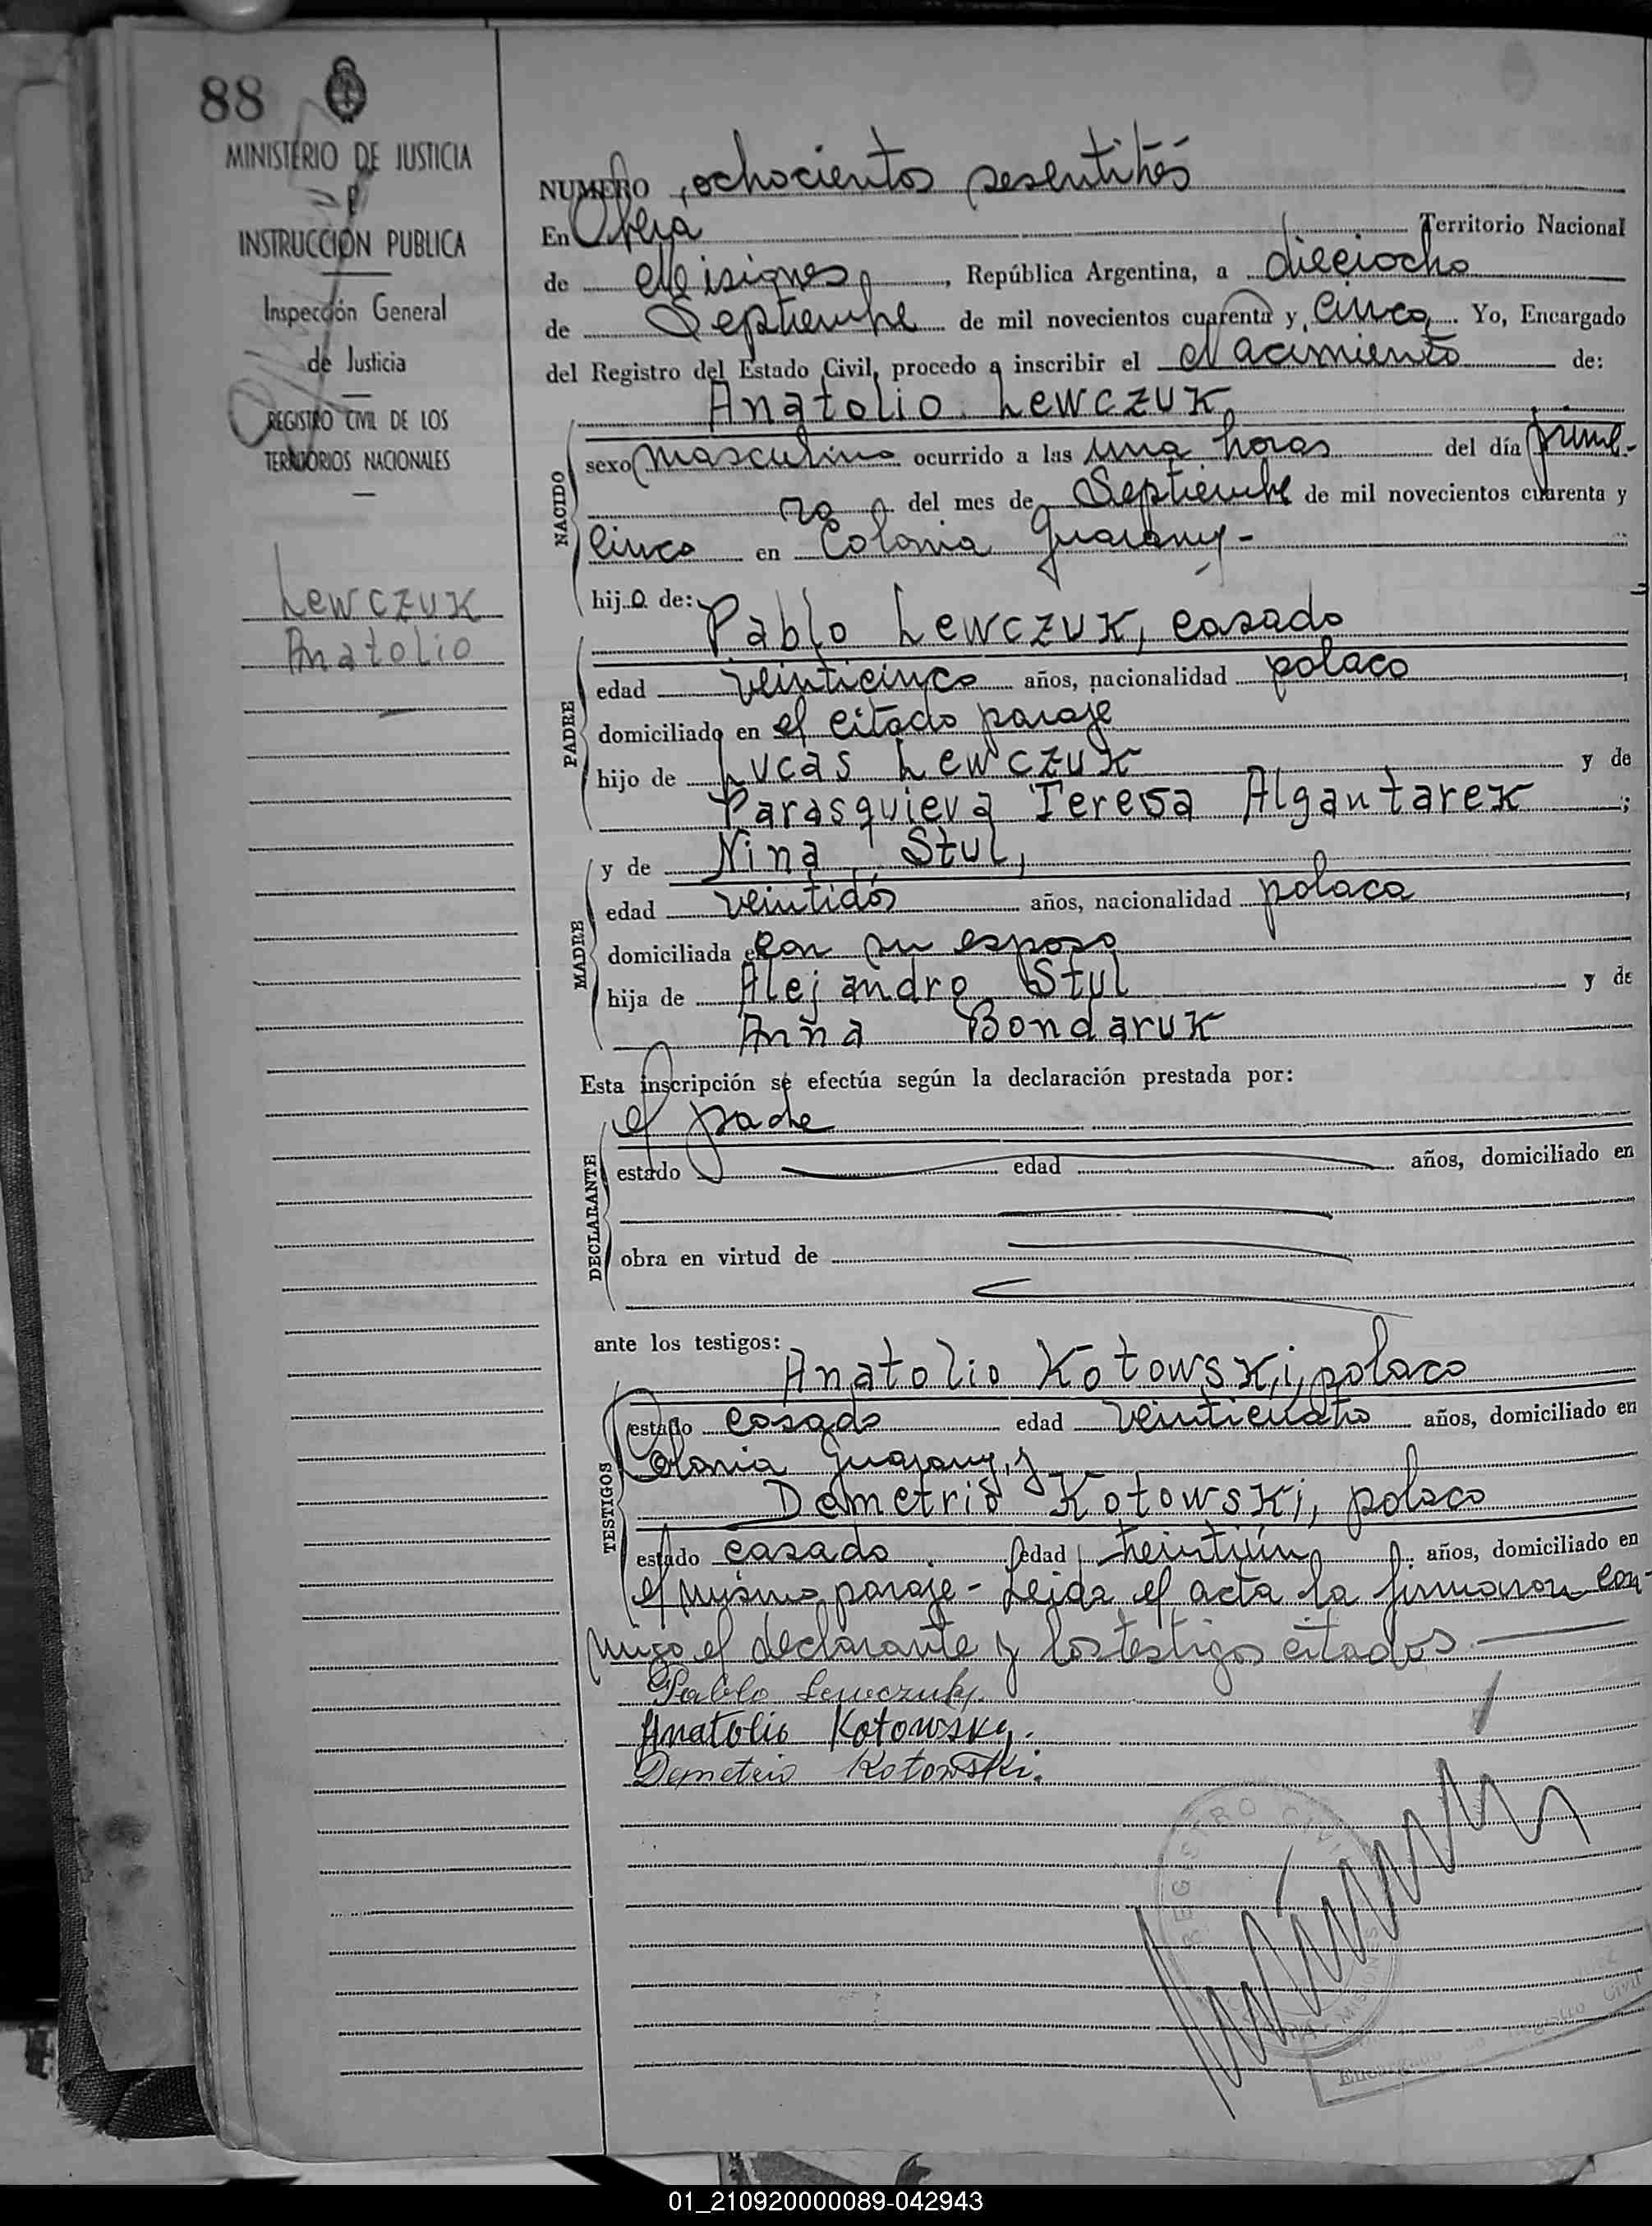 88
MINISTERIO DE JUSTICIA
E
INSTRUCCIÓN PUBLICA
Inspección General
de Justicia
REGISTRO CIVIL DE LOS
TERRITORIOS NACIONALES
Lewczuk
Anatolio
NUMERO ochocientos sesentitrés
En Oberá Territorio Nacional
de Misiones, República Argentina, a dieciocho
de Septiembre de mil novecientos cuarenta y cinco. Yo, Encargado
del Registro del Estado Civil, procedo a inscribir el Nacimiento de:
Anatolio Lewczuk,
NACIDO
sexo masculino ocurrido a las una horas del día prime-
ro del mes de Septiembre de mil novecientos cuarenta y
cinco en Colonia Guarany-
hijo de:
Pablo Lewczuk, casado
PADRE
edad veinticinco años, nacionalidad polaco,
domiciliado en el citado paraje
hijo de Lucas Lewczuk y de
Parasquieva Teresa Algantarek;
MADRE
y de Nina Stul,
edad veintidós años, nacionalidad polaca,
domiciliada con su esposo
hija de Alejandro Stul y de
Anna Bondaruk
Esta inscripción se efectúa según la declaración prestada por:
el padre
DECLARANTE
estado edad años, domiciliado en
obra en virtud de
ante los testigos:
Anatolio Kotowski, polaco
TESTIGOS
estado casado edad veinticuatro años, domiciliado en
Colonia Guarany, y
Demetrio Kotowski, polaco
estado casado edad treintiún años, domiciliado en
el mismo paraje - Leida el acta la firmaron con-
migo el declarante y los testigos citados
Pablo Lewczuk
Anatolio Kotowsky.
Demetrio Kotowski.
REGISTRO CIVIL
MISIONES
Encargado Registro Civil
01_210920000089-042943